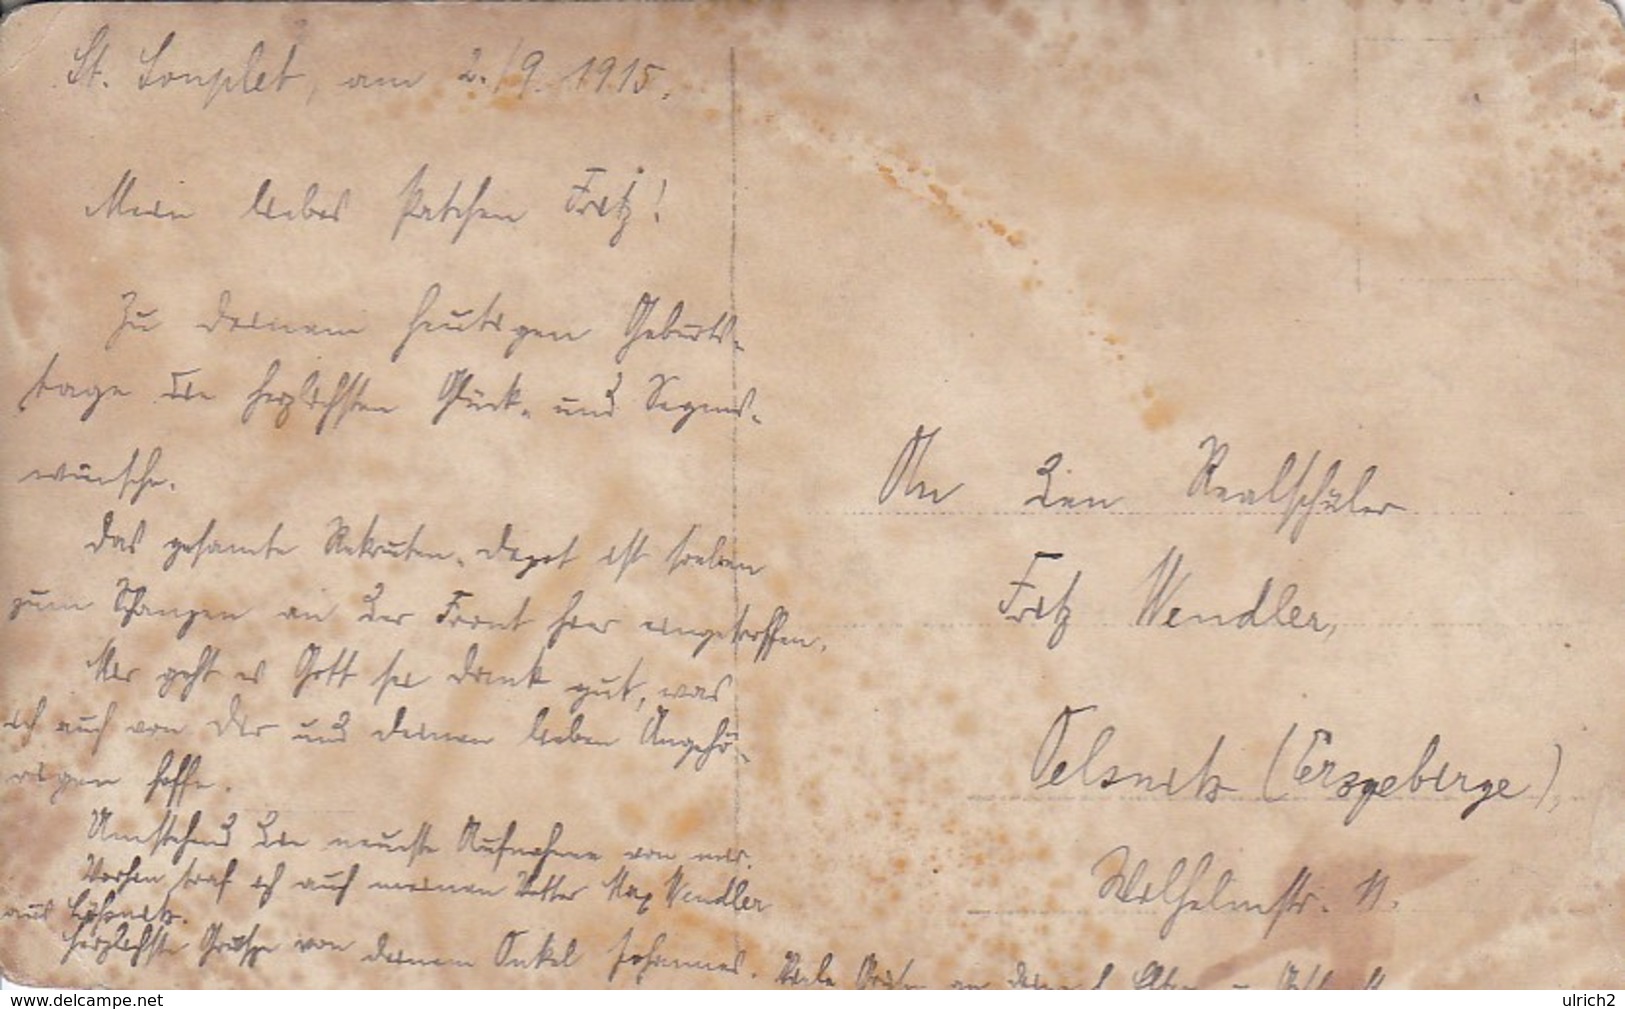 St. Souplet, am 2./9. 1915.
Mein liebes Patchen Fritz!
Zu deinem heutigen Geburts-
tage die herzlichsten Glück- und Segens-
wünsche.
Das gesamte Rekruten-Depot ist soeben
zum Schanzen an der Front hier eingetroffen.
Mir geht es Gott sei Dank gut, was
ich auch von Dir und deinen lieben Angehö-
rigen hoffe.
Umstehend die neueste Aufnahme von mir.
Vorhin traf ich auch meinen Vetter Max Wendler
aus Lößnitz.
Herzlichste Grüße von deinem Onkel Johannes. Viele Grüße an deine l. Eltern u.
An den Realschüler
Fritz Wendler,
Oelsnitz (Erzgebirge),
Wilhelmstr. 11.
ulrich2
www.delcampe.net